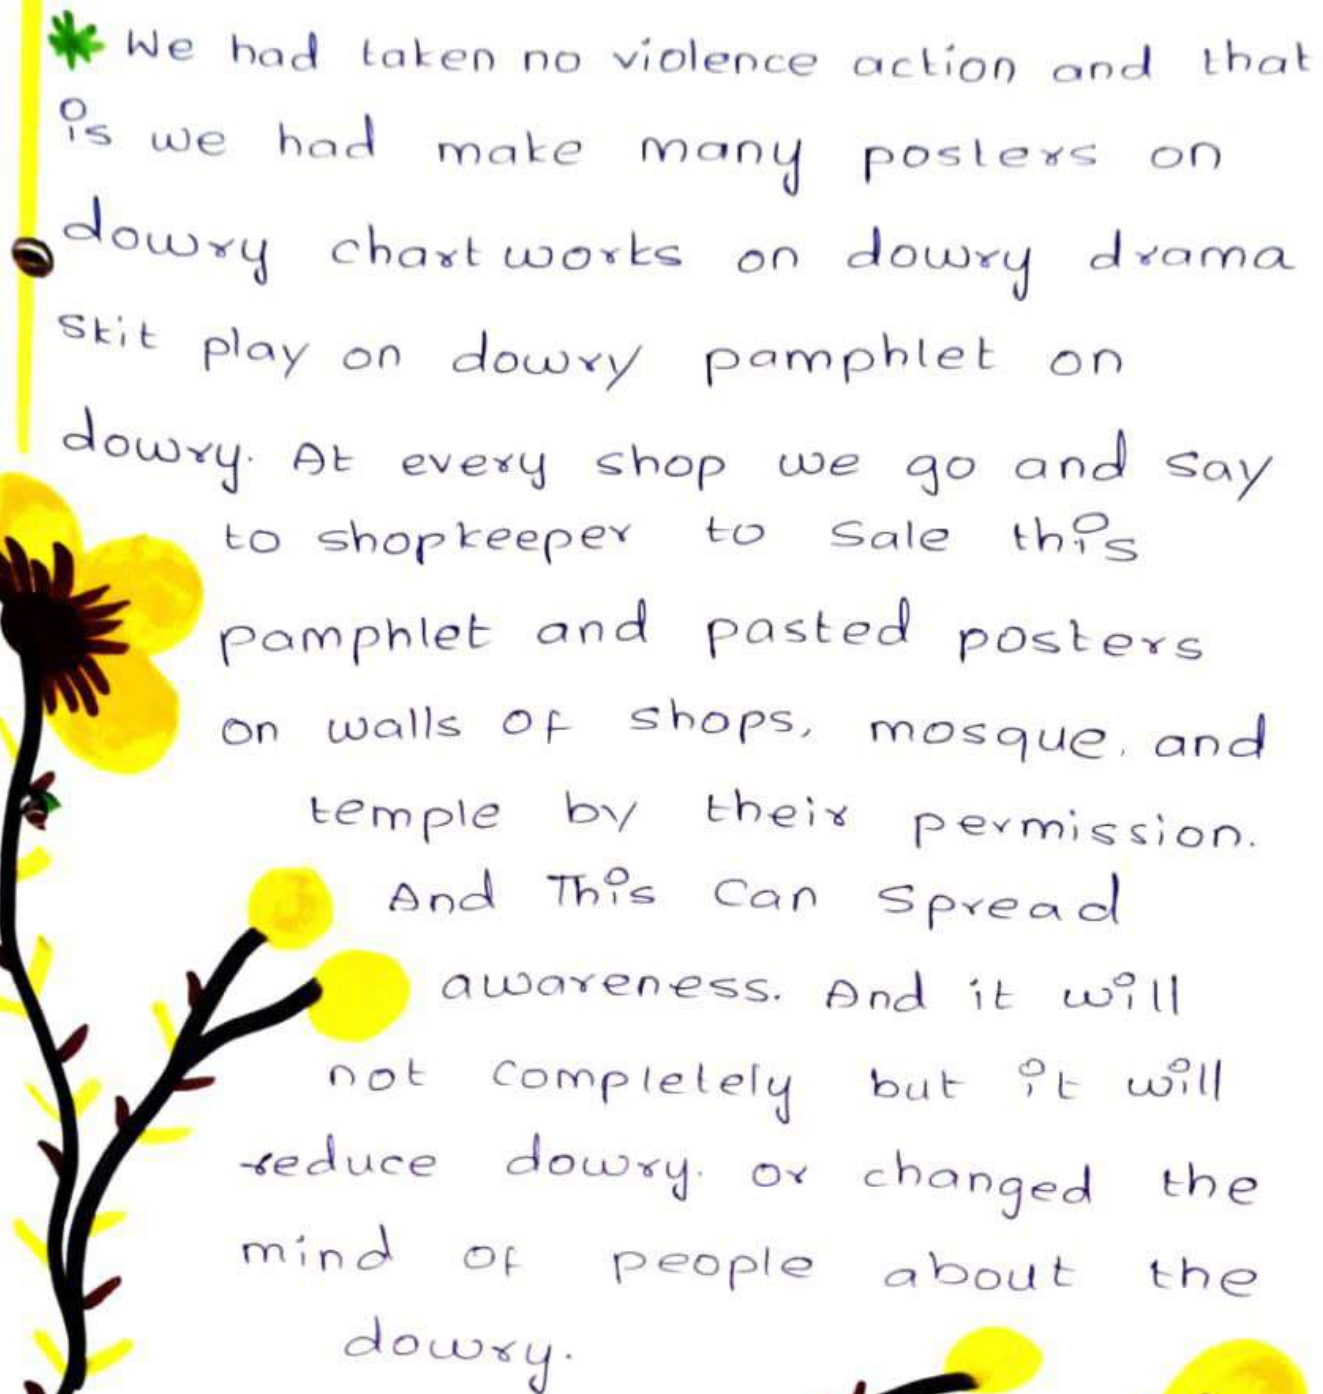 We had taken no violence action and that
is we had make many posters on
dowry chart works on dowry drama
skit play on dowry pamphlet on
dowry. At every shop we go and say
to shopkeeper to sale this
pamphlet and pasted posters
on walls of shops, mosque, and
temple by their permission.
And This Can Spread
awareness. And it will
not completely but it will
reduce dowry. or changed the
mind of people about the
dowry.